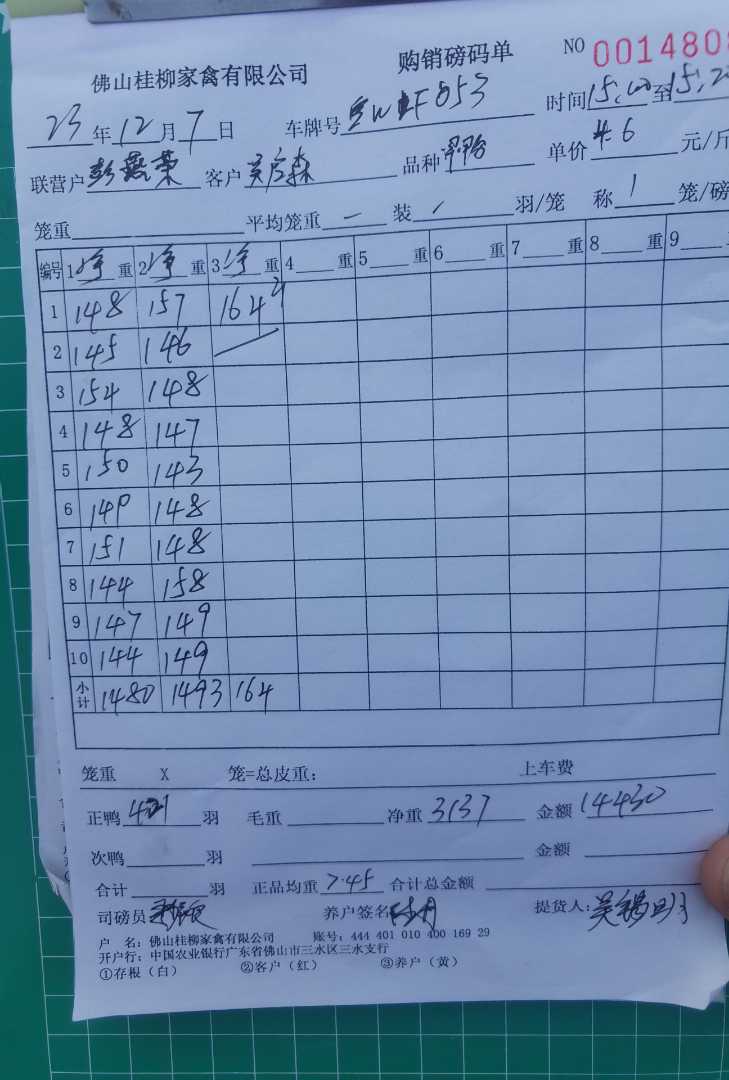 佛山桂柳家禽有限公司 购销磅码单 NO 001480
23年12月7日 车牌号 F853 时间15:00至15:20
联营户彭 荣 客户 森 品种 单价4.6元/斤
笼重 平均笼重一 装/羽/笼 称1笼/磅
编号 1净重 2净重 3净重 4重 5重 6重 7重 8重 9
1 148 157 164
2 145 146
3 154 148
4 148 147
5 150 143
6 149 148
7 151 148
8 144 158
9 147 149
10 144 149
小计 1480 1493 164
笼重 X 笼=总皮重: 上车费
正鸭421羽 毛重 净重3137 金额14430
次鸭 羽 金额
合计 羽 正品均重7.45 合计总金额
司磅员 养户签名 提货人:吴锡明
户 名: 佛山桂柳家禽有限公司 账号: 444 401 010 400 169 29
开户行: 中国农业银行广东省佛山市三水区三水支行
①存根(白) ②客户(红) ③养户(黄)